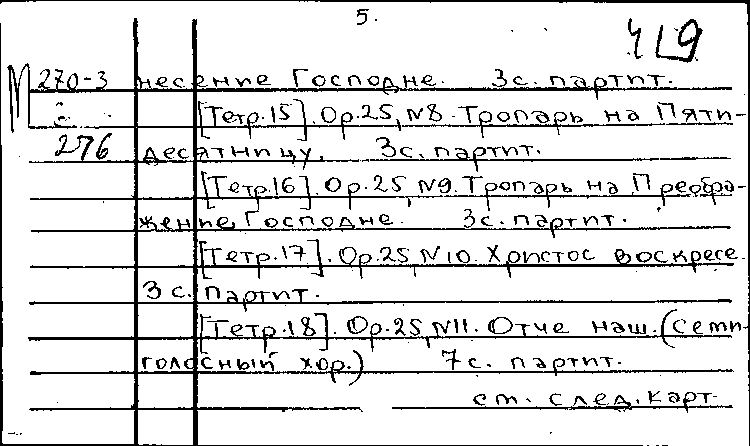 5.
419
М 270-3 несение Господне. 3с. партит.
[Тетр.15]. Ор.25, №8. Тропарь на Пяти-
276 десятницу. 3с. партит.
[Тетр.16]. Ор.25, №9. Тропарь на Преобра-
жение Господне. 3с. партит.
[Тетр.17]. Ор.25, №10. Христос воскресе.
3 с. партит.
[Тетр.18]. Ор.25, №11. Отче наш. (Семи-
голосный хор.) 7с. партит.
см. след. карт.